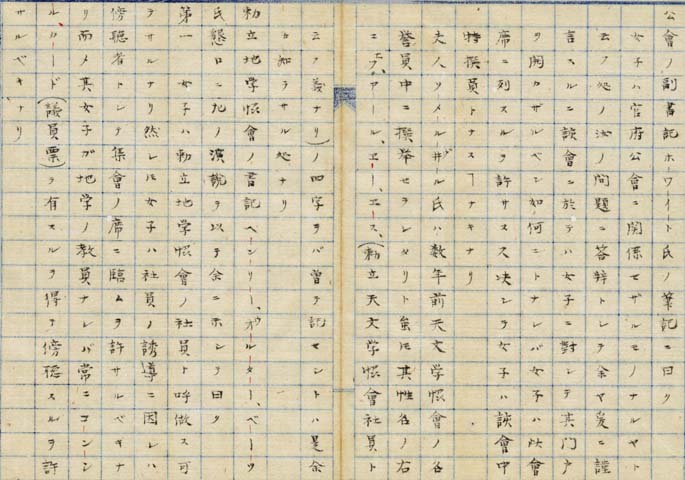 公會ノ副書記ホワイト氏ノ筆記ニ曰ク
女子ハ官府公會ニ関係セザルモノナルヤト
云フ処ノ次ノ問題ニ答辞トシテ余ヤ爰ニ謹
言スルニ談會ニ於テハ女子ニ對シテ其門戸
ヲ開カザルベシ如何ニトナレバ女子ハ此會
席ニ列スルヲ許サス又决シテ女子ハ談會中
特撰員トナスヿナキナリ
夫人ソメールヸール氏ハ数年前天文学協會ノ名
誉員中ニ撰挙セラレタリト虽ヒ其姓名ノ右
ニエフ、アール、エー、エス、(勅立天文学協會社員ト
云フ義ナリ)ノ四字ヲバ曽テ記セントハ是余
カ知ラサル処ナリ
勅立地学協會ノ書記ヘーンリー、ヲルター、ベーツ
氏懇ロニ九ノ演説ヲ以テ余ニ示シテ曰ク
第一 女子ハ勅立地学協會ノ社員ト呼做ス可
ラサルナリ然レ𪜈女子ハ社員ノ誘導ニ因レハ
傍聴者トシテ集會ノ席ニ臨ムヲ許サルベキナ
リ而メ其女子ガ地学ノ教員ナレバ常ニコーシン
ルカード(議員票)ヲ有スルヲ得テ傍聴スルヲ許
サルベキナリ